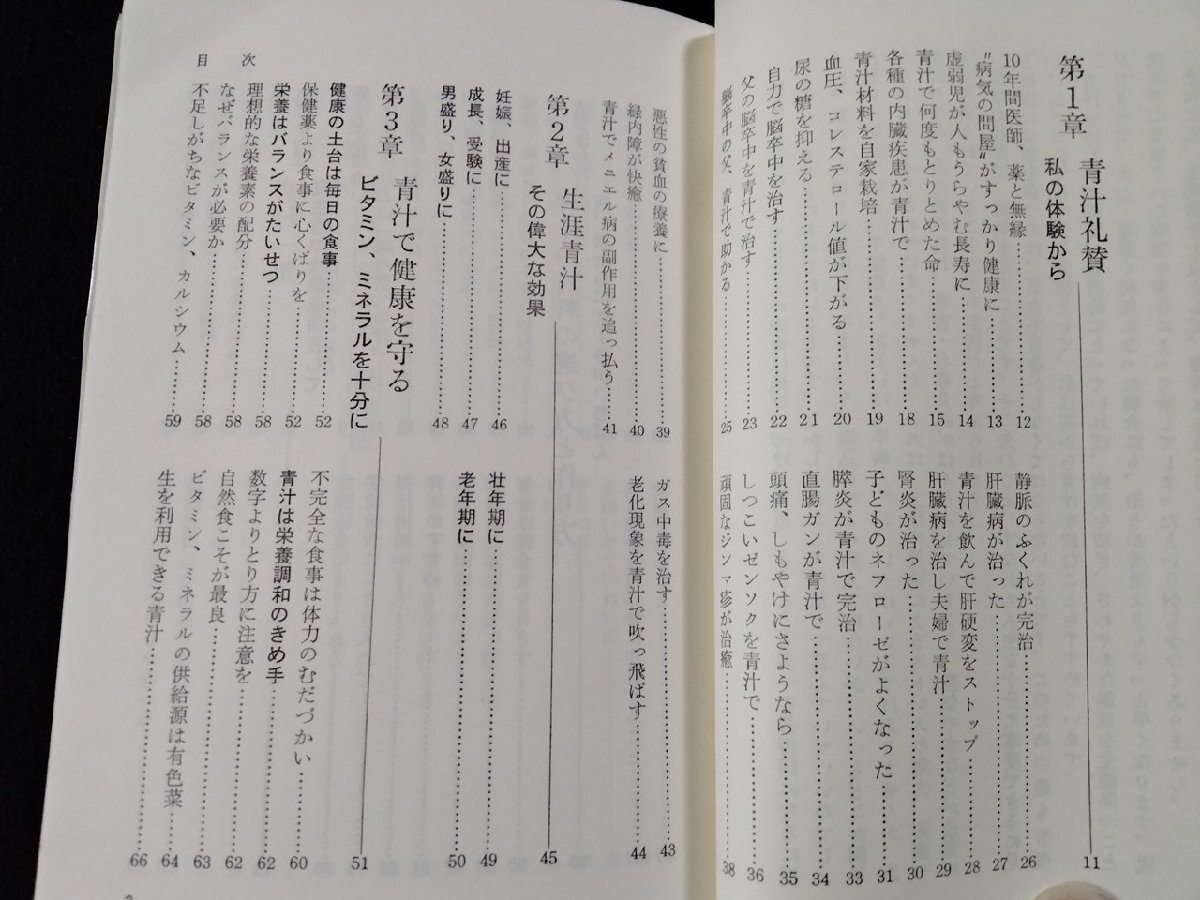 第1章 青汁礼賛 11
私の体験から
10年間医師、薬と無縁 12
"病気の問屋"がすっかり健康に 13
虚弱児が人もうらやむ長寿に 14
青汁で何度もとりとめた命 15
各種の内臓疾患が青汁で 18
青汁材料を自家栽培 19
血圧、コレステロール値が下がる 20
尿の糖を抑える 21
自力で脳卒中を治す 22
父の脳卒中を青汁で治す 23
脳卒中の父、青汁で助かる 25
静脈のふくれが完治 26
肝臓病が治った 27
青汁を飲んで肝硬変をストップ 28
肝臓病を治し夫婦で青汁 29
腎炎が治った 30
子どものネフローゼがよくなった 31
膵炎が青汁で完治 33
直腸ガンが青汁で 34
頭痛、しもやけにさようなら 35
しつこいゼンソクを青汁で 36
頑固なジンマ疹が治癒 38
悪性の貧血の療養に 39
緑内障が快癒 40
青汁でメニエル病の副作用を追っ払う 41
ガス中毒を治す 43
老化現象を青汁で吹っ飛ばす 44
第2章 生涯青汁 45
その偉大な効果
妊娠、出産に 46
成長、受験に 47
男盛り、女盛りに 48
壮年期に 49
老年期に 50
第3章 青汁で健康を守る 51
ビタミン、ミネラルを十分に
健康の土台は毎日の食事 52
保健薬より食事に心くばりを 52
栄養はバランスがたいせつ 58
理想的な栄養素の配分 58
なぜバランスが必要か 58
不足しがちなビタミン、カルシウム 59
不完全な食事は体力のむだづかい 60
青汁は栄養調和のきめ手 62
数字よりとり方に注意を 62
自然食こそが最良 63
ビタミン、ミネラルの供給源は有色菜 64
生を利用できる青汁 66
目次